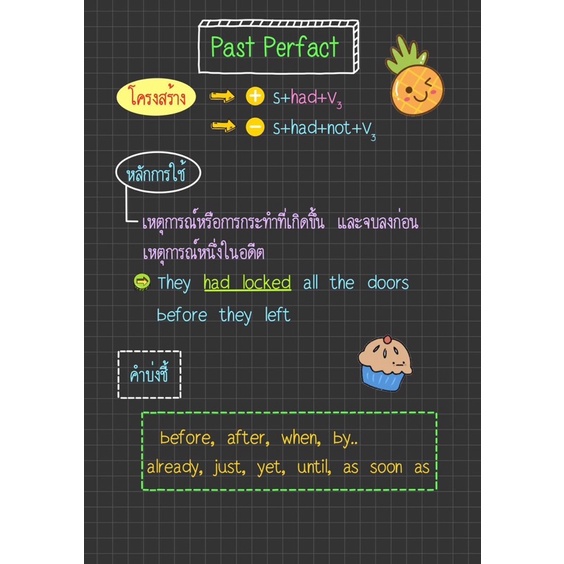 Past Perfact
โครงสร้าง
+ S+had+V3
- S+had+not+V3
หลักการใช้
เหตุการณ์หรือการกระทำที่เกิดขึ้น และจบลงก่อน
เหตุการณ์หนึ่งในอดีต
They had locked all the doors
before they left
คำบ่งชี้
before, after, when, by..
already, just, yet, until, as soon as